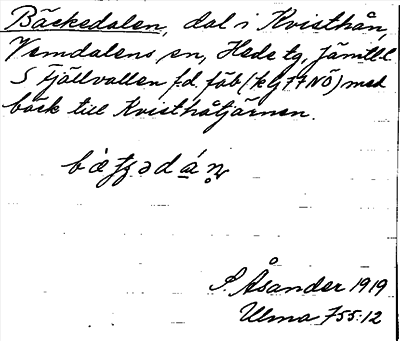 Bäckedalen, dal i Kvisthån,
Vemdalens sn, Hede tg, Jämtl. l.
S Fjällvallen fd. fäb (kg 77NÖ) med
bäck till Kvisthåtjärnen.
S. Åsander 1919
Ulma 755:12